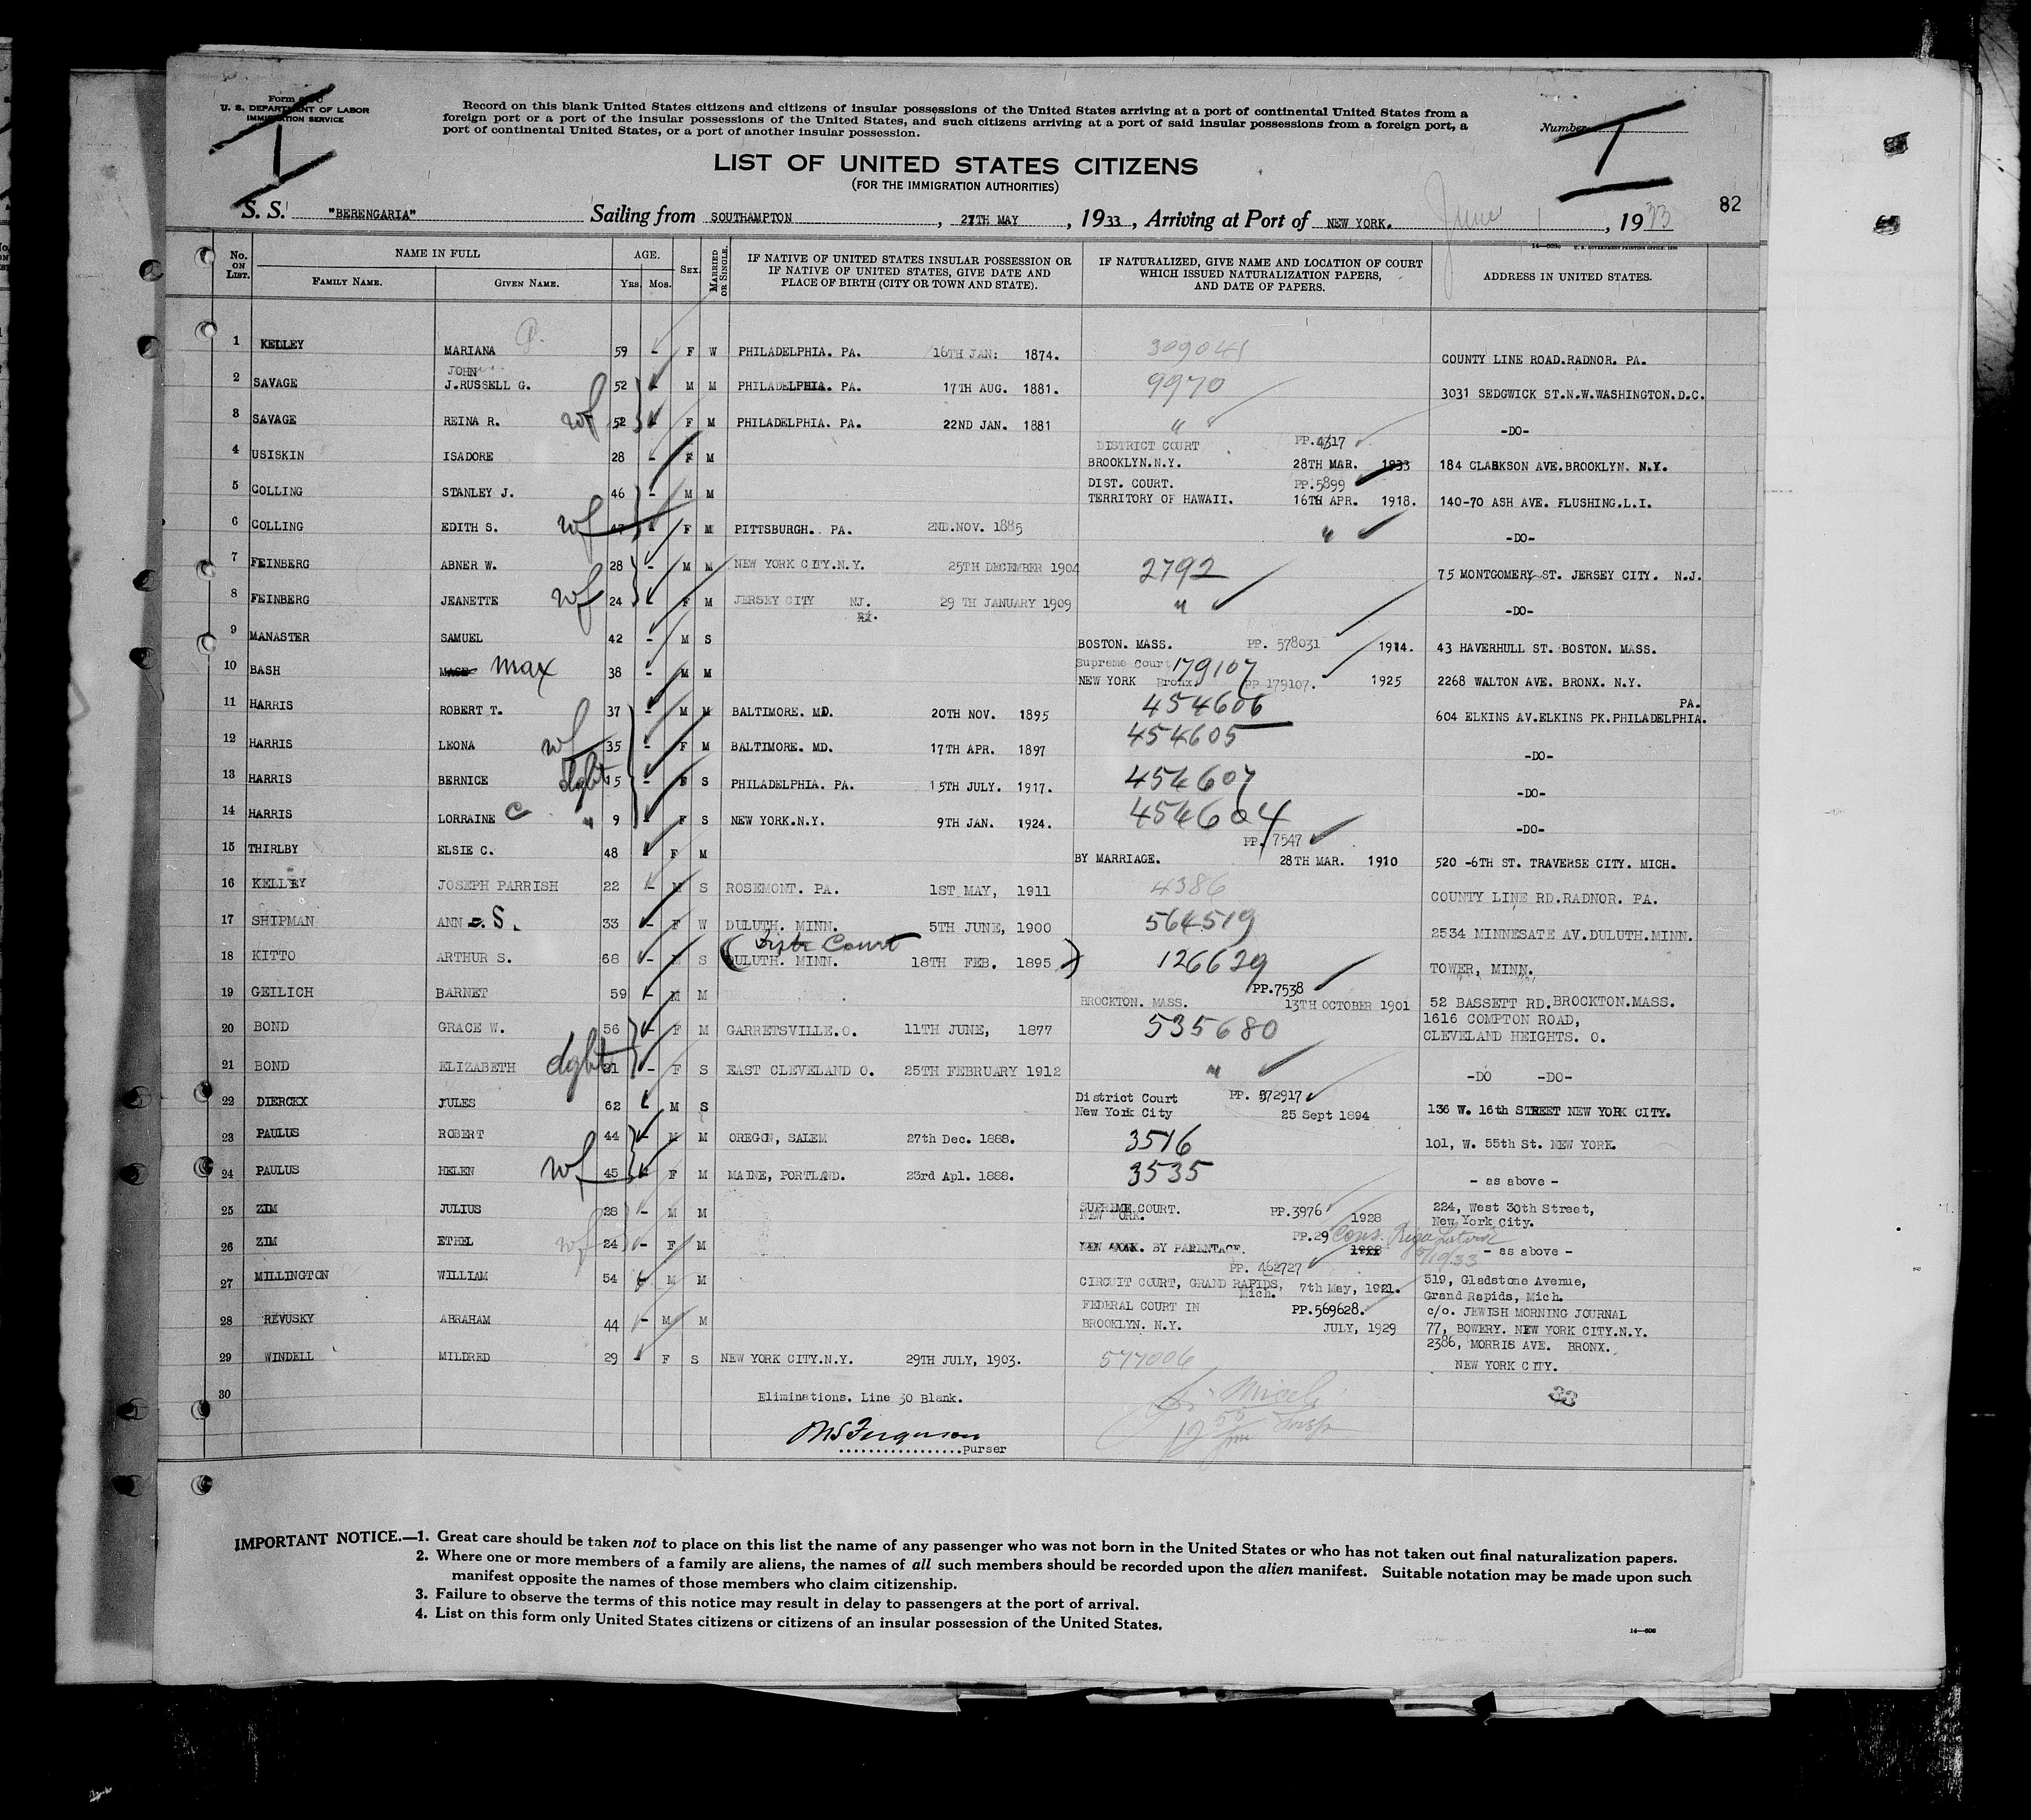 Form
U. S. DEPARTMENT OF LABOR
IMMIGRATION SERVICE
Record on this blank United States citizens and citizens of insular possessions of the United States arriving at a port of continental United States from a
foreign port or a port of the insular possessions of the United States, and such citizens arriving at a port of said insular possessions from a foreign port, a
port of continental United States, or a port of another insular possession.
Number
LIST OF UNITED STATES CITIZENS
(FOR THE IMMIGRATION AUTHORITIES)
82
S. S. "BERENGARIA" Sailing from SOUTHAMPTON, 27TH MAY, 1933, Arriving at Port of NEW YORK. June 1, 1933
14-509a U. S. GOVERNMENT PRINTING OFFICE
No. ON LIST. NAME IN FULL FAMILY NAME. GIVEN NAME. AGE. YRS. MOS. SEX. MARRIED OR SINGLE. IF NATIVE OF UNITED STATES INSULAR POSSESSION OR IF NATIVE OF UNITED STATES, GIVE DATE AND PLACE OF BIRTH (CITY OR TOWN AND STATE). IF NATURALIZED, GIVE NAME AND LOCATION OF COURT WHICH ISSUED NATURALIZATION PAPERS, AND DATE OF PAPERS. ADDRESS IN UNITED STATES.
1 KELLEY MARIANA G. 59 - F W PHILADELPHIA. PA. 16TH JAN: 1874. 309041 COUNTY LINE ROAD.RADNOR. PA.
2 SAVAGE JOHN J.RUSSELL G. 52 - M M PHILADELPHIA. PA. 17TH AUG. 1881. 9970 3031 SEDGWICK ST.N.W.WASHINGTON.D.C.
3 SAVAGE REINA R. wf 52 - F M PHILADELPHIA. PA. 22ND JAN. 1881 " -DO-
4 USISKIN ISADORE 28 - F M DISTRICT COURT PP.4317 BROOKLYN.N.Y. 28TH MAR. 1933 184 CLARKSON AVE.BROOKLYN. N.Y.
5 COLLING STANLEY J. 46 - M M DIST. COURT. PP.5899 TERRITORY OF HAWAII. 16TH APR. 1918. 140-70 ASH AVE. FLUSHING.L.I.
6 COLLING EDITH S. wf 47 - F M PITTSBURGH. PA. 2ND.NOV. 1885 " -DO-
7 FEINBERG ABNER W. 28 - M M NEW YORK CITY.N.Y. 25TH DECEMBER 1904 2792 75 MONTGOMERY ST. JERSEY CITY. N.J.
8 FEINBERG JEANETTE wf 24 - F M JERSEY CITY NJ. 29 TH JANUARY 1909 " -DO-
9 MANASTER SAMUEL 42 - M S BOSTON. MASS. PP. 578031 1914. 43 HAVERHULL ST. BOSTON. MASS.
10 BASH max 38 - M M Supreme Court 179107 NEW YORK Bronx. PP 179107. 1925 2268 WALTON AVE. BRONX. N.Y.
11 HARRIS ROBERT T. 37 - M M BALTIMORE. MD. 20TH NOV. 1895 454606 604 ELKINS AV.ELKINS PK.PHILADELPHIA. PA.
12 HARRIS LEONA wf 35 - F M BALTIMORE. MD. 17TH APR. 1897 454605 -DO-
13 HARRIS BERNICE dght 15 - F S PHILADELPHIA. PA. 15TH JULY. 1917. 454607 -DO-
14 HARRIS LORRAINE C " 9 - F S NEW YORK.N.Y. 9TH JAN. 1924. 454604 -DO-
15 THIRLBY ELSIE C. 48 - F M BY MARRIAGE. PP. 7547 28TH MAR. 1910 520 -6TH ST. TRAVERSE CITY. MICH.
16 KELLEY JOSEPH PARRISH 22 - M S ROSEMONT. PA. 1ST MAY, 1911 4386 COUNTY LINE RD.RADNOR. PA.
17 SHIPMAN ANN S. 33 - F W DULUTH. MINN. 5TH JUNE, 1900 564519 2534 MINNESATE AV.DULUTH.MINN.
18 KITTO ARTHUR S. 68 - M S (Dist Court DULUTH. MINN. 18TH FEB. 1895) 126629 TOWER, MINN.
19 GEILICH BARNET 59 - M M BROCKTON. MASS. PP.7538 13TH OCTOBER 1901 52 BASSETT RD.BROCKTON.MASS.
20 BOND GRACE W. 56 - F M GARRETSVILLE.O. 11TH JUNE, 1877 535680 1616 COMPTON ROAD, CLEVELAND HEIGHTS. O.
21 BOND ELIZABETH dght 21 - F S EAST CLEVELAND O. 25TH FEBRUARY 1912 " -DO -DO-
22 DIERCKX JULES 62 - M S District Court PP. 572917 New York City 25 Sept 1894 136 W. 16th STREET NEW YORK CITY.
23 PAULUS ROBERT 44 - M M OREGON, SALEM 27th Dec. 1888. 3516 101, W. 55th St. NEW YORK.
24 PAULUS HELEN wf 45 - F M MAINE, PORTLAND. 23rd Apl. 1888. 3535 - as above -
25 ZIM JULIUS 28 - M M SUPREME COURT. NEW YORK. PP.3976 1928 224, West 30th Street, New York City.
26 ZIM ETHEL wf 24 - F M NEW YORK. BY PARENTAGE. PP.29 Cons. Riga Latvia 1928 5/10/33 - as above -
27 MILLINGTON WILLIAM 54 - M M PP. 462727 CIRCUIT COURT, GRAND RAPIDS, Mich. 7th May, 1921. 519, Gladstone Avenue, Grand Rapids, Mich.
28 REVUSKY ABRAHAM 44 - M M FEDERAL COURT IN PP.569628. BROOKLYN. N.Y. JULY, 1929 c/o. JEWISH MORNING JOURNAL 77, BOWERY. NEW YORK CITY.N.Y.
29 WINDELL MILDRED 29 - F S NEW YORK CITY.N.Y. 29TH JULY, 1903. 577006 2386, MORRIS AVE. BRONX. NEW YORK CITY.
30 Eliminations. Line 30 Blank.
Ferguson
Purser
IMPORTANT NOTICE.—1. Great care should be taken not to place on this list the name of any passenger who was not born in the United States or who has not taken out final naturalization papers.
2. Where one or more members of a family are aliens, the names of all such members should be recorded upon the alien manifest. Suitable notation may be made upon such
manifest opposite the names of those members who claim citizenship.
3. Failure to observe the terms of this notice may result in delay to passengers at the port of arrival.
4. List on this form only United States citizens or citizens of an insular possession of the United States.